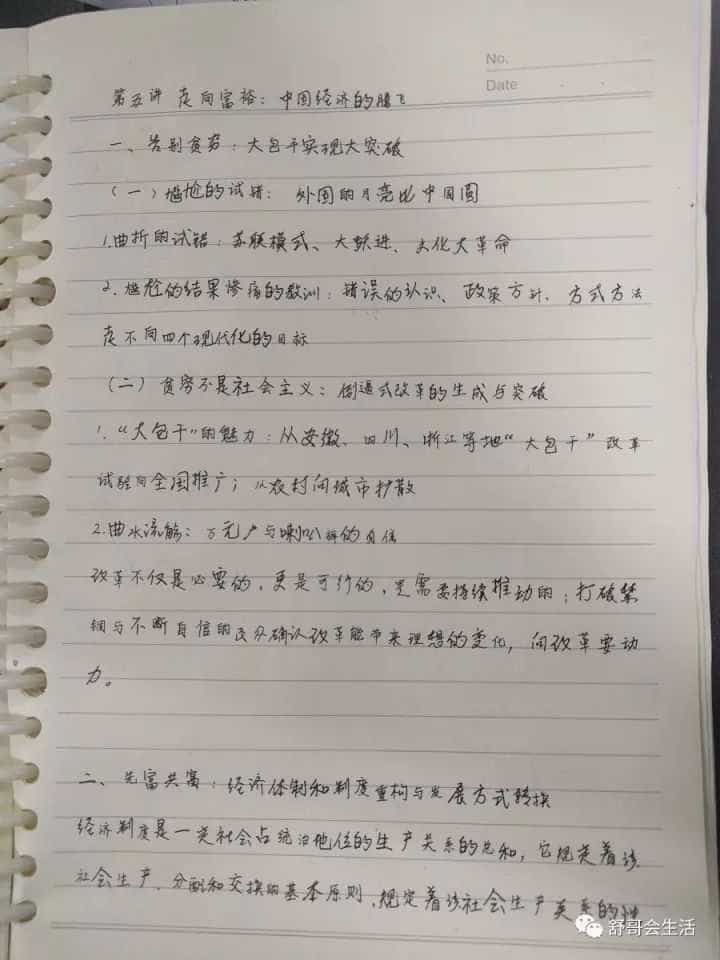 No.
Date
第五讲 走向富裕：中国经济的腾飞
一、告别贫穷：大包干实现大突破
（一）尴尬的试错： 外国的月亮比中国圆
1.曲折的试错：苏联模式、大跃进、文化大革命
2.尴尬的结果惨痛的教训：错误的认识、政策方针、方式方法
走不向四个现代化的目标
（二）贫穷不是社会主义：倒逼式改革的生成与突破
1.“大包干”的魅力：从安徽、四川、浙江等地“大包干”改革
试验向全国推广；从农村向城市扩散
2.曲水流觞：万元户与喇叭裤的自信
改革不仅是必要的，更是可行的，是需要持续推动的；打破禁
锢与不断自信的民众确认改革能带来理想的变化，向改革要动
力。
二、先富共富：经济体制和制度重构与发展方式转换
经济制度是一类社会占统治地位的生产关系的总和，它规定着该
社会生产、分配和交换的基本原则，规定着该社会生产关系的性
舒哥会生活